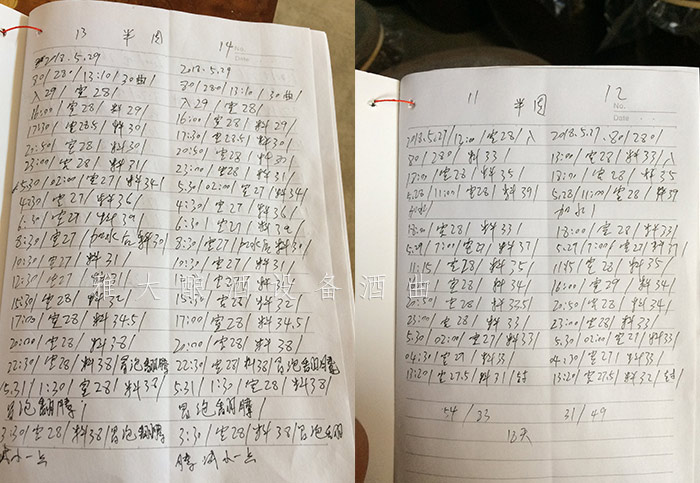 13 半肉 14
No.
Date
2018.5.29
30/28°/13:10/30曲/
入29/室28/
16:00/室28/料29/
17:30/室28.5/料30/
20:50/室28/料30/
23:00/室28/料31/
5.30/02:00/室27/料34/
4:30/室27/料36/
6:30/室27/料39/
8:30/室27/加水后料30/
10:30/室27/料31/
12:30/室27/料31/
15:30/室28/料32/
17:00/室28/料34.5/
20:00/室28/料38/
22:30/室28/料38/冒泡翻腾/
5.31/1:30/室28/料38/
冒泡翻腾/
3:30/室28/料38/冒泡翻腾
减小一点
2018.5.29
30/280/13:10/30曲/
入29/室28/
16:00/室28/料29/
17:30/室28.5/料30/
20:50/室28/料30/
23:00/室28/料31/
5.30/02:00/室27/料34/
4:30/室27/料36/
6:30/室27/料39/
8:30/室27/加水后料30/
10:30/室27/料31/
室27/料31/
15:30/室28/料32/
17:00/室28/料34.5/
20:00/室28/料38/
22:30/室28/料38/冒泡翻腾
5.31/1:30/室28/料38/
冒泡翻腾/
3:30/室28/料38/冒泡翻
腾减小一点
11 半肉 12
No.
Date
2018.5.27/12:00/室28/入
30/280/料33/
18:00/室28/料35/
5.28/11:00/室28/料39/
加水/
18:00/室28/料33/
5.29/7:00/室27/料37/
11:15/室28/料35/
室28/料34/
20:50/室28/料33.5/
23:00/室28/料33/
5.30/02:00/室27/料33/
04:30/室27/料33/
13:20/室27.5/料31/封
54/33
2018.5.27.30/280/
13:00/室28/料33/入
18:00/室28/料35/
5.28/11:00/室28/料39
加水/
18:00/室28/料33/
5.29/7:00/室27/料37/
11:15/室28/料35/
16:00/室29/料34/
20:50/室28/料34/
23:00/室28/料33/
5.30/02:00/室27/料33/
04:30/室27/料33/
13:20/室27.5/料32/封
31/49
12天
雅大酿酒设备酒曲